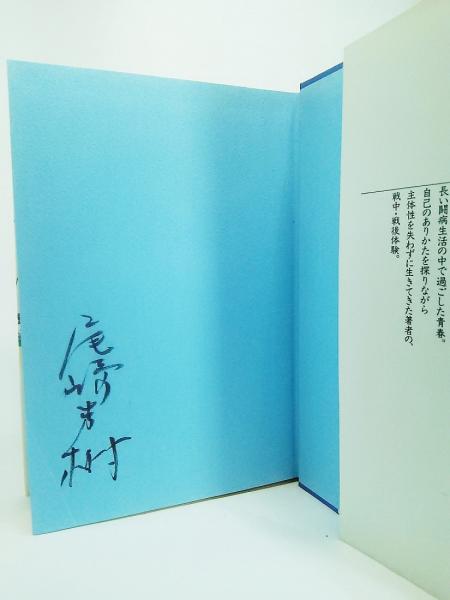 長い闘病生活の中で過ごした青春。
自己のありかたを探りながら
主体性を失わずに生きてきた著者の、
戦中・戦後体験。
尾崎秀樹